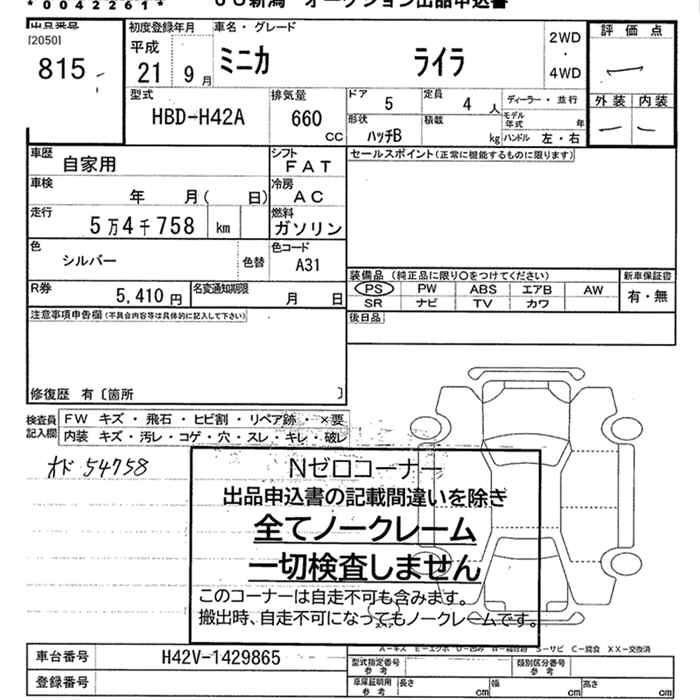 *0042261*
ＪＵ新潟 オークション出品申込書
出品番号
[2050]
815
初度登録年月
平成
21 9月
車名・グレード
ミニカ ライラ
2WD
・
4WD
評価点
外装 内装
型式
HBD-H42A
排気量
660
CC
ドア 5
定員 4 人
ディーラー・並行
形状 ハッチB
積載 kg
モデル年式 年
ハンドル 左・右
車歴 自家用
シフト FAT
セールスポイント(正常に機能するものに限ります)
車検 年 月( 日)
冷房 AC
走行 5万4千758 km
燃料 ガソリン
色 シルバー 色替
色コード A31
装備品 (純正品に限り○をつけてください) 新車保証書
PS PW ABS エアB AW 有・無
SR ナビ TV カワ
R券 5,410円
名変通知期限 月 日
後日品
注意事項申告欄(不具合内容等は具体的に記入して下さい)
修復歴 有〔箇所 〕
検査員記入欄
FW キズ・飛石・ヒビ割・リペア跡・×要
内装 キズ・汚レ・コゲ・穴・スレ・キレ・破レ
オド 54758
Nゼロコーナー
出品申込書の記載間違いを除き
全てノークレーム
一切検査しません
このコーナーは自走不可も含みます。
搬出時、自走不可になってもノークレームです。
A-キズ E-エクボ U-凹み W-補修跡 S-サビ C-腐食 XX-交換済
車台番号 H42V-1429865
型式指定番号 参考
類別区分番号 参考
登録番号
車庫証明用 参考
長さ cm 幅 cm 高さ cm